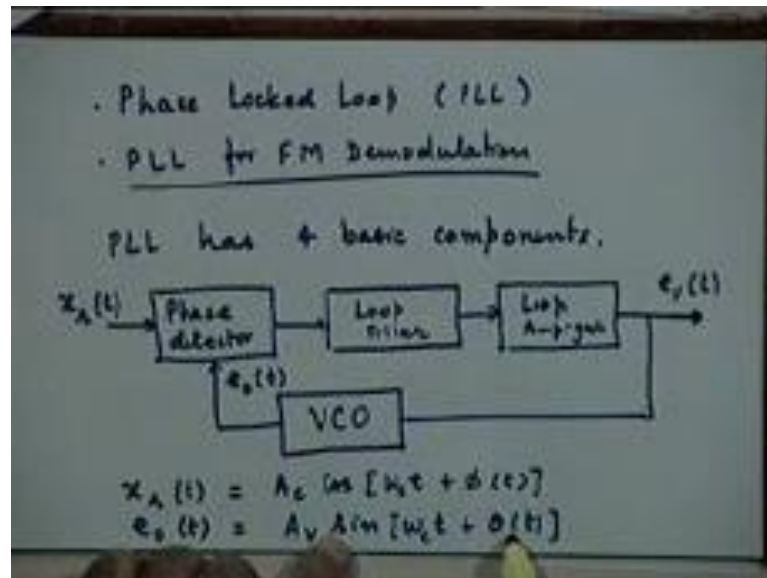 . Phase Locked Loop (PLL)
. PLL for FM Demodulation
PLL has 4 basic components.
x_r(t)
Phase detector
Loop Filter
Loop Amp.
e_v(t)
e_o(t)
VCO
x_r(t) = A_c Cos [ω_c t + φ(t)]
e_o(t) = A_v Sin [ω_c t + θ(t)]